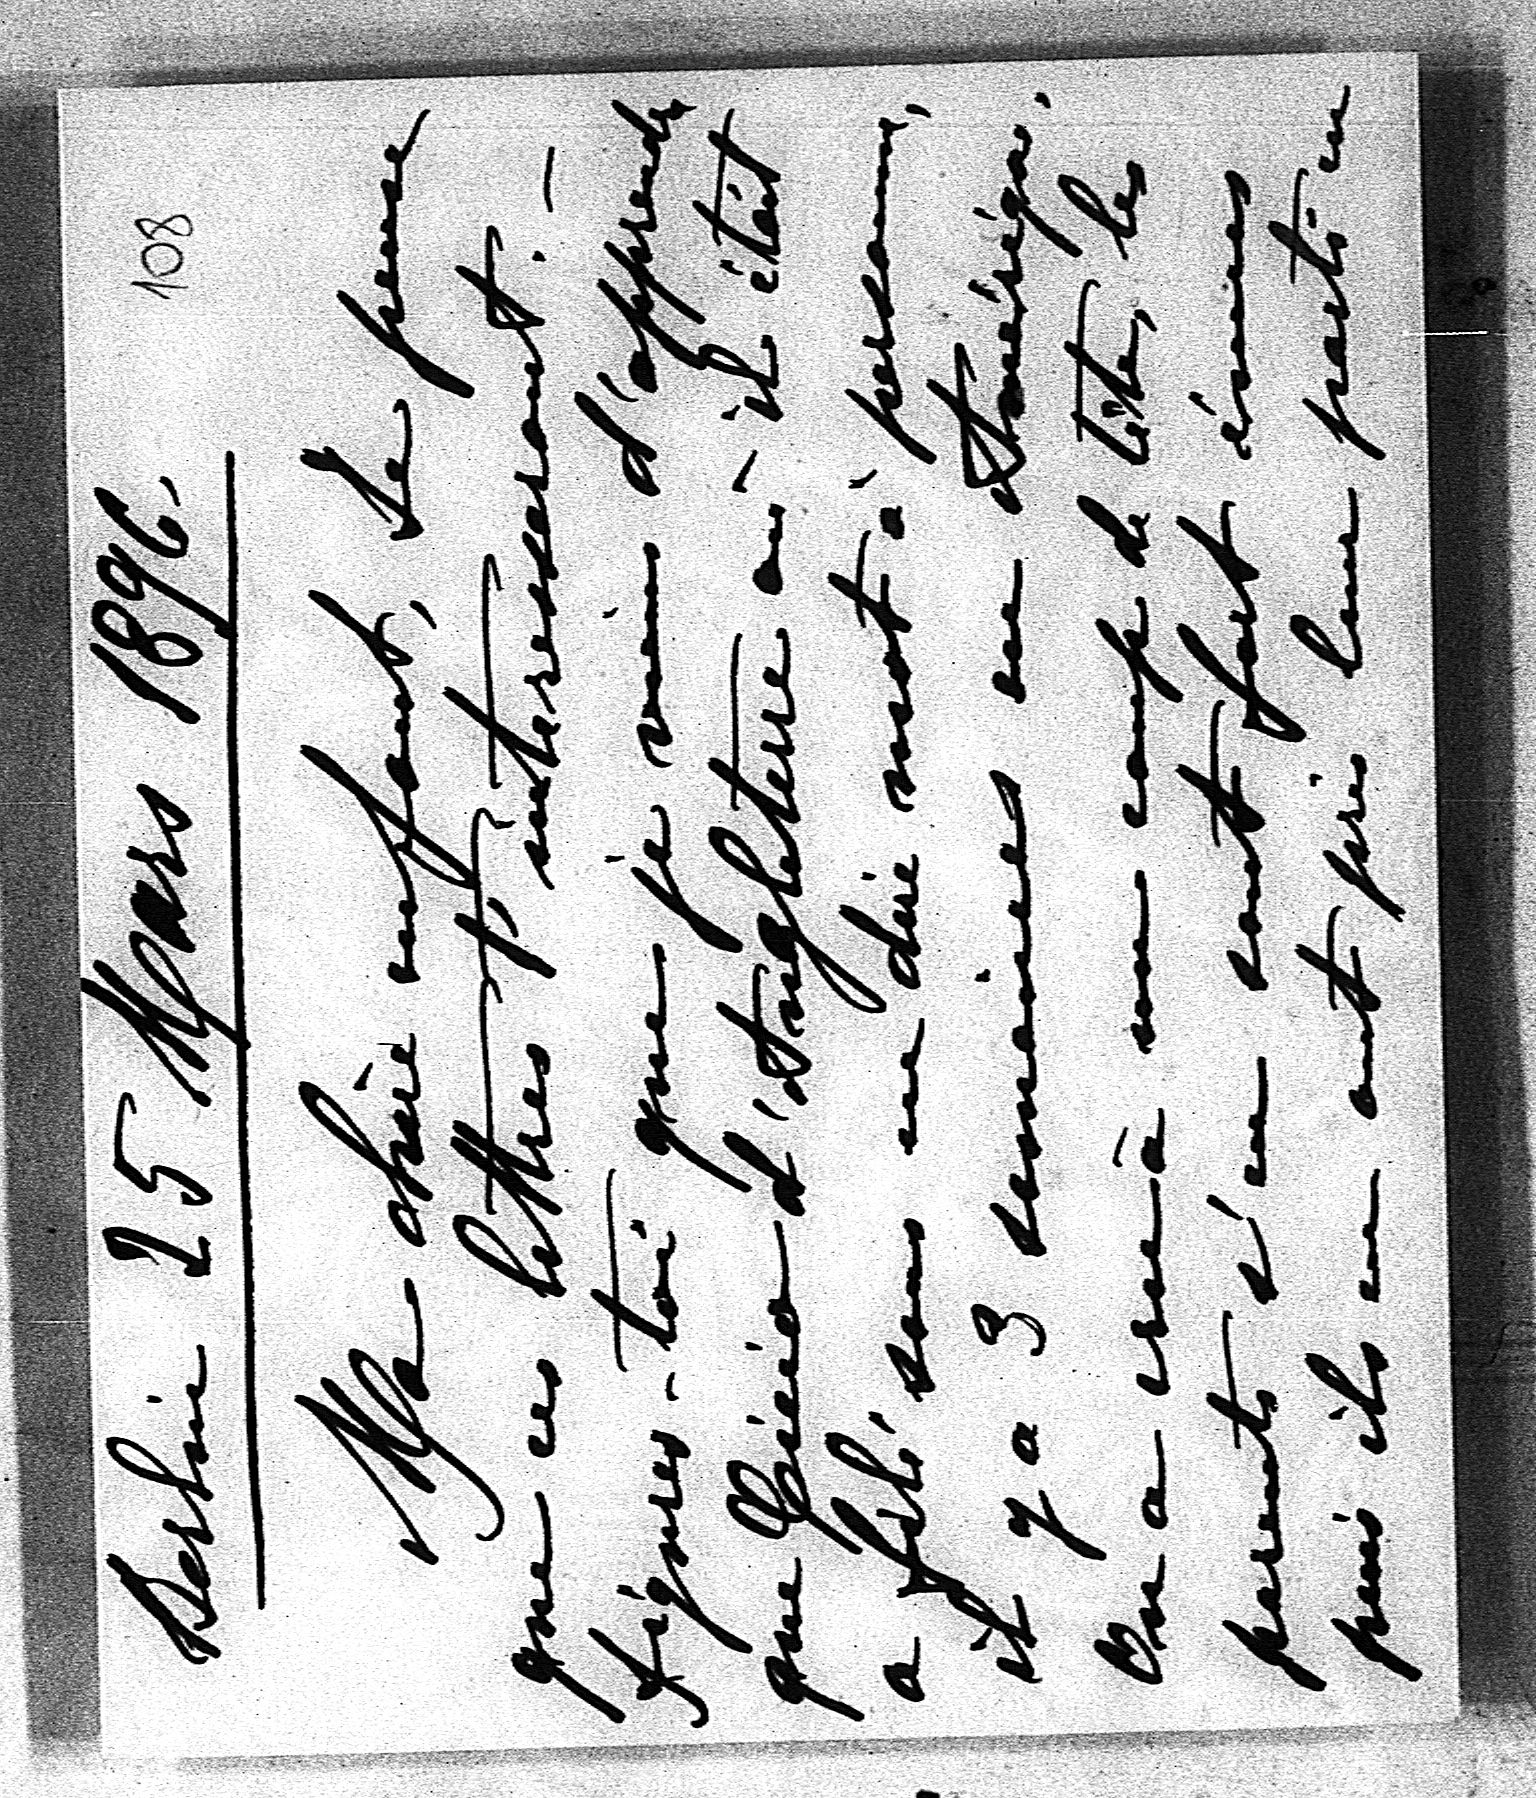 108
Berlin 25 Mars 1896.
Ma chère enfant, Je pense
que ces lettres t'intéresseront. —
Figures-toi que je viens d'apprendre
que d'Angleterre où il était
a filé sans en dire mot à personne,
il y a 3 semaines en Amérique.
On a cru à un coup de tête, les
parents s'en sont fort émus
puis ils en ont pris leur parti en